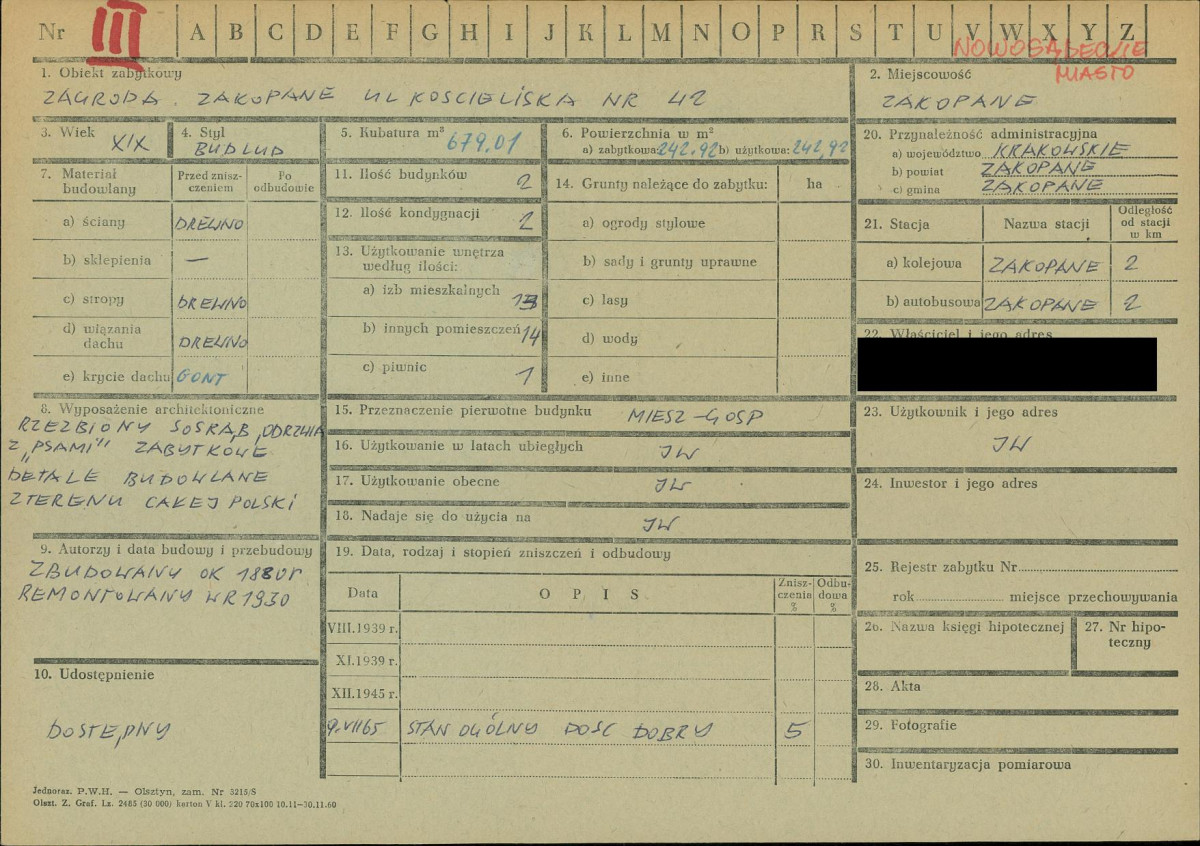 Nr III A B C D E F G H I J K L M N O P R S T U V W X Y Z
NOWOSĄDECKIE
MIASTO
1. Obiekt zabytkowy
ZAGRODA. ZAKOPANE UL KOSCIELISKA NR 42
2. Miejscowość
ZAKOPANE
3. Wiek
XIX
4. Styl
BUD LUD
5. Kubatura m³
679.01
6. Powierzchnia w m²
a) zabytkowa: 242.92 b) użytkowa: 242,92
7. Materiał budowlany
Przed zniszczeniem
Po odbudowie
a) ściany DREWNO
b) sklepienia —
c) stropy DREWNO
d) wiązania dachu DREWNO
e) krycie dachu GONT
8. Wyposażenie architektoniczne
RZEZBIONY SOSRĄB, ODRZWIA
Z „PSAMI” ZABYTKOWE
DETALE BUDOWLANE
Z TERENU CAŁEJ POLSKI
9. Autorzy i data budowy i przebudowy
ZBUDOWANY OK 1880r
REMONTOWANY W R 1930
10. Udostępnienie
DOSTĘPNY
11. Ilość budynków 2
12. Ilość kondygnacji 2
13. Użytkowanie wnętrza
według ilości:
a) izb mieszkalnych 13
b) innych pomieszczeń 14
c) piwnic 1
14. Grunty należące do zabytku: ha
a) ogrody stylowe
b) sady i grunty uprawne
c) lasy
d) wody
e) inne
15. Przeznaczenie pierwotne budynku MIESZ-GOSP
16. Użytkowanie w latach ubiegłych JW
17. Użytkowanie obecne JW
18. Nadaje się do użycia na JW
19. Data, rodzaj i stopień zniszczeń i odbudowy
Data OPIS Zniszczenia % Odbudowa %
VIII.1939 r.
XI.1939 r.
XII.1945 r.
9.VII65 STAN OGÓLNY DOSC DOBRY 5
20. Przynależność administracyjna
a) województwo KRAKOWSKIE
b) powiat ZAKOPANE
c) gmina ZAKOPANE
21. Stacja Nazwa stacji Odległość od stacji w km
a) kolejowa ZAKOPANE 2
b) autobusowa ZAKOPANE 2
22. Właściciel i jego adres
23. Użytkownik i jego adres
JW
24. Inwestor i jego adres
25. Rejestr zabytku Nr
rok miejsce przechowywania
26. Nazwa księgi hipotecznej
27. Nr hipoteczny
28. Akta
29. Fotografie
30. Inwentaryzacja pomiarowa
Jednoraz. P.W.H. — Olsztyn, zam. Nr 3215/S
Olszt. Z. Graf. Lz. 2485 (30 000) karton V kl. 220 70x100 10.11—30.11.60